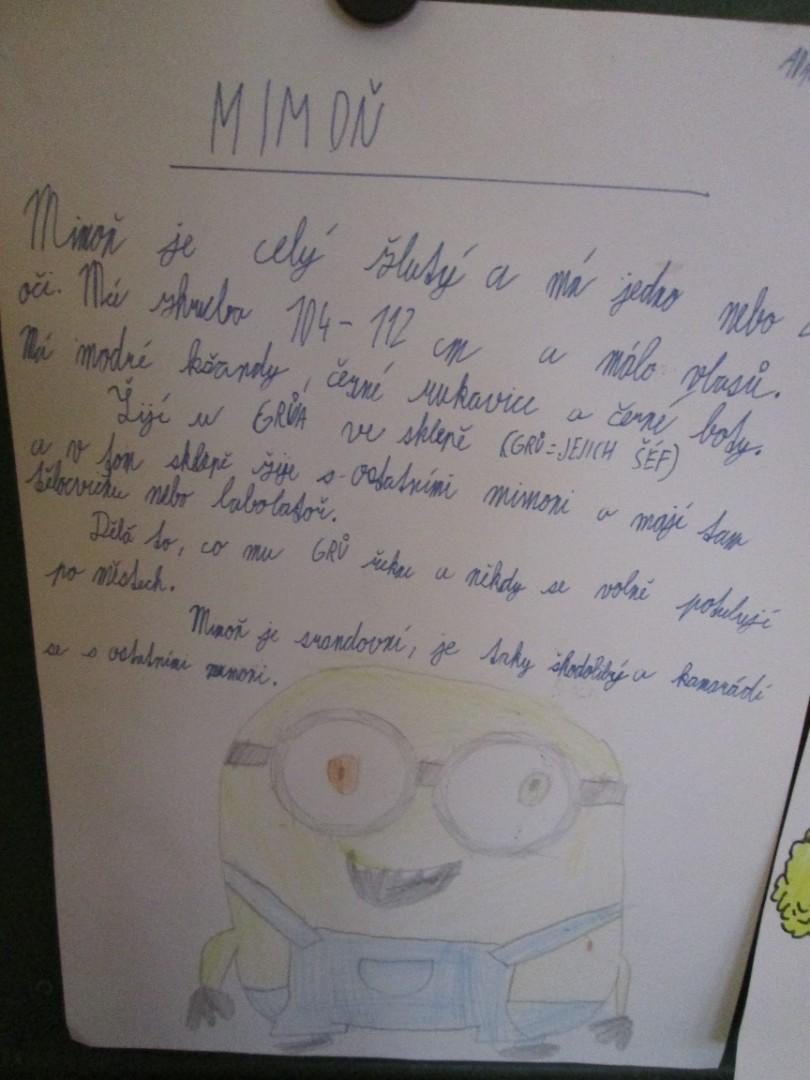 MIMOŇ
Mimoň je celý žlutý a má jedno nebo 2
oči. Má zhruba 104-112 cm a málo vlasů.
Má modré kšandy, černé rukavice a černé boty.
Žijí u GRŮA ve sklepě (GRŮ=JEJICH ŠÉF)
a v tom sklepě žije s ostatními mimoni a mají tam
tělocvičnu nebo labolatoř.
Dělá to, co mu GRŮ řekne a někdy se volně potulují
po městech.
Mimoň je srandovní, je taky škodolibý a kamarádí
se s ostatními mimoni.